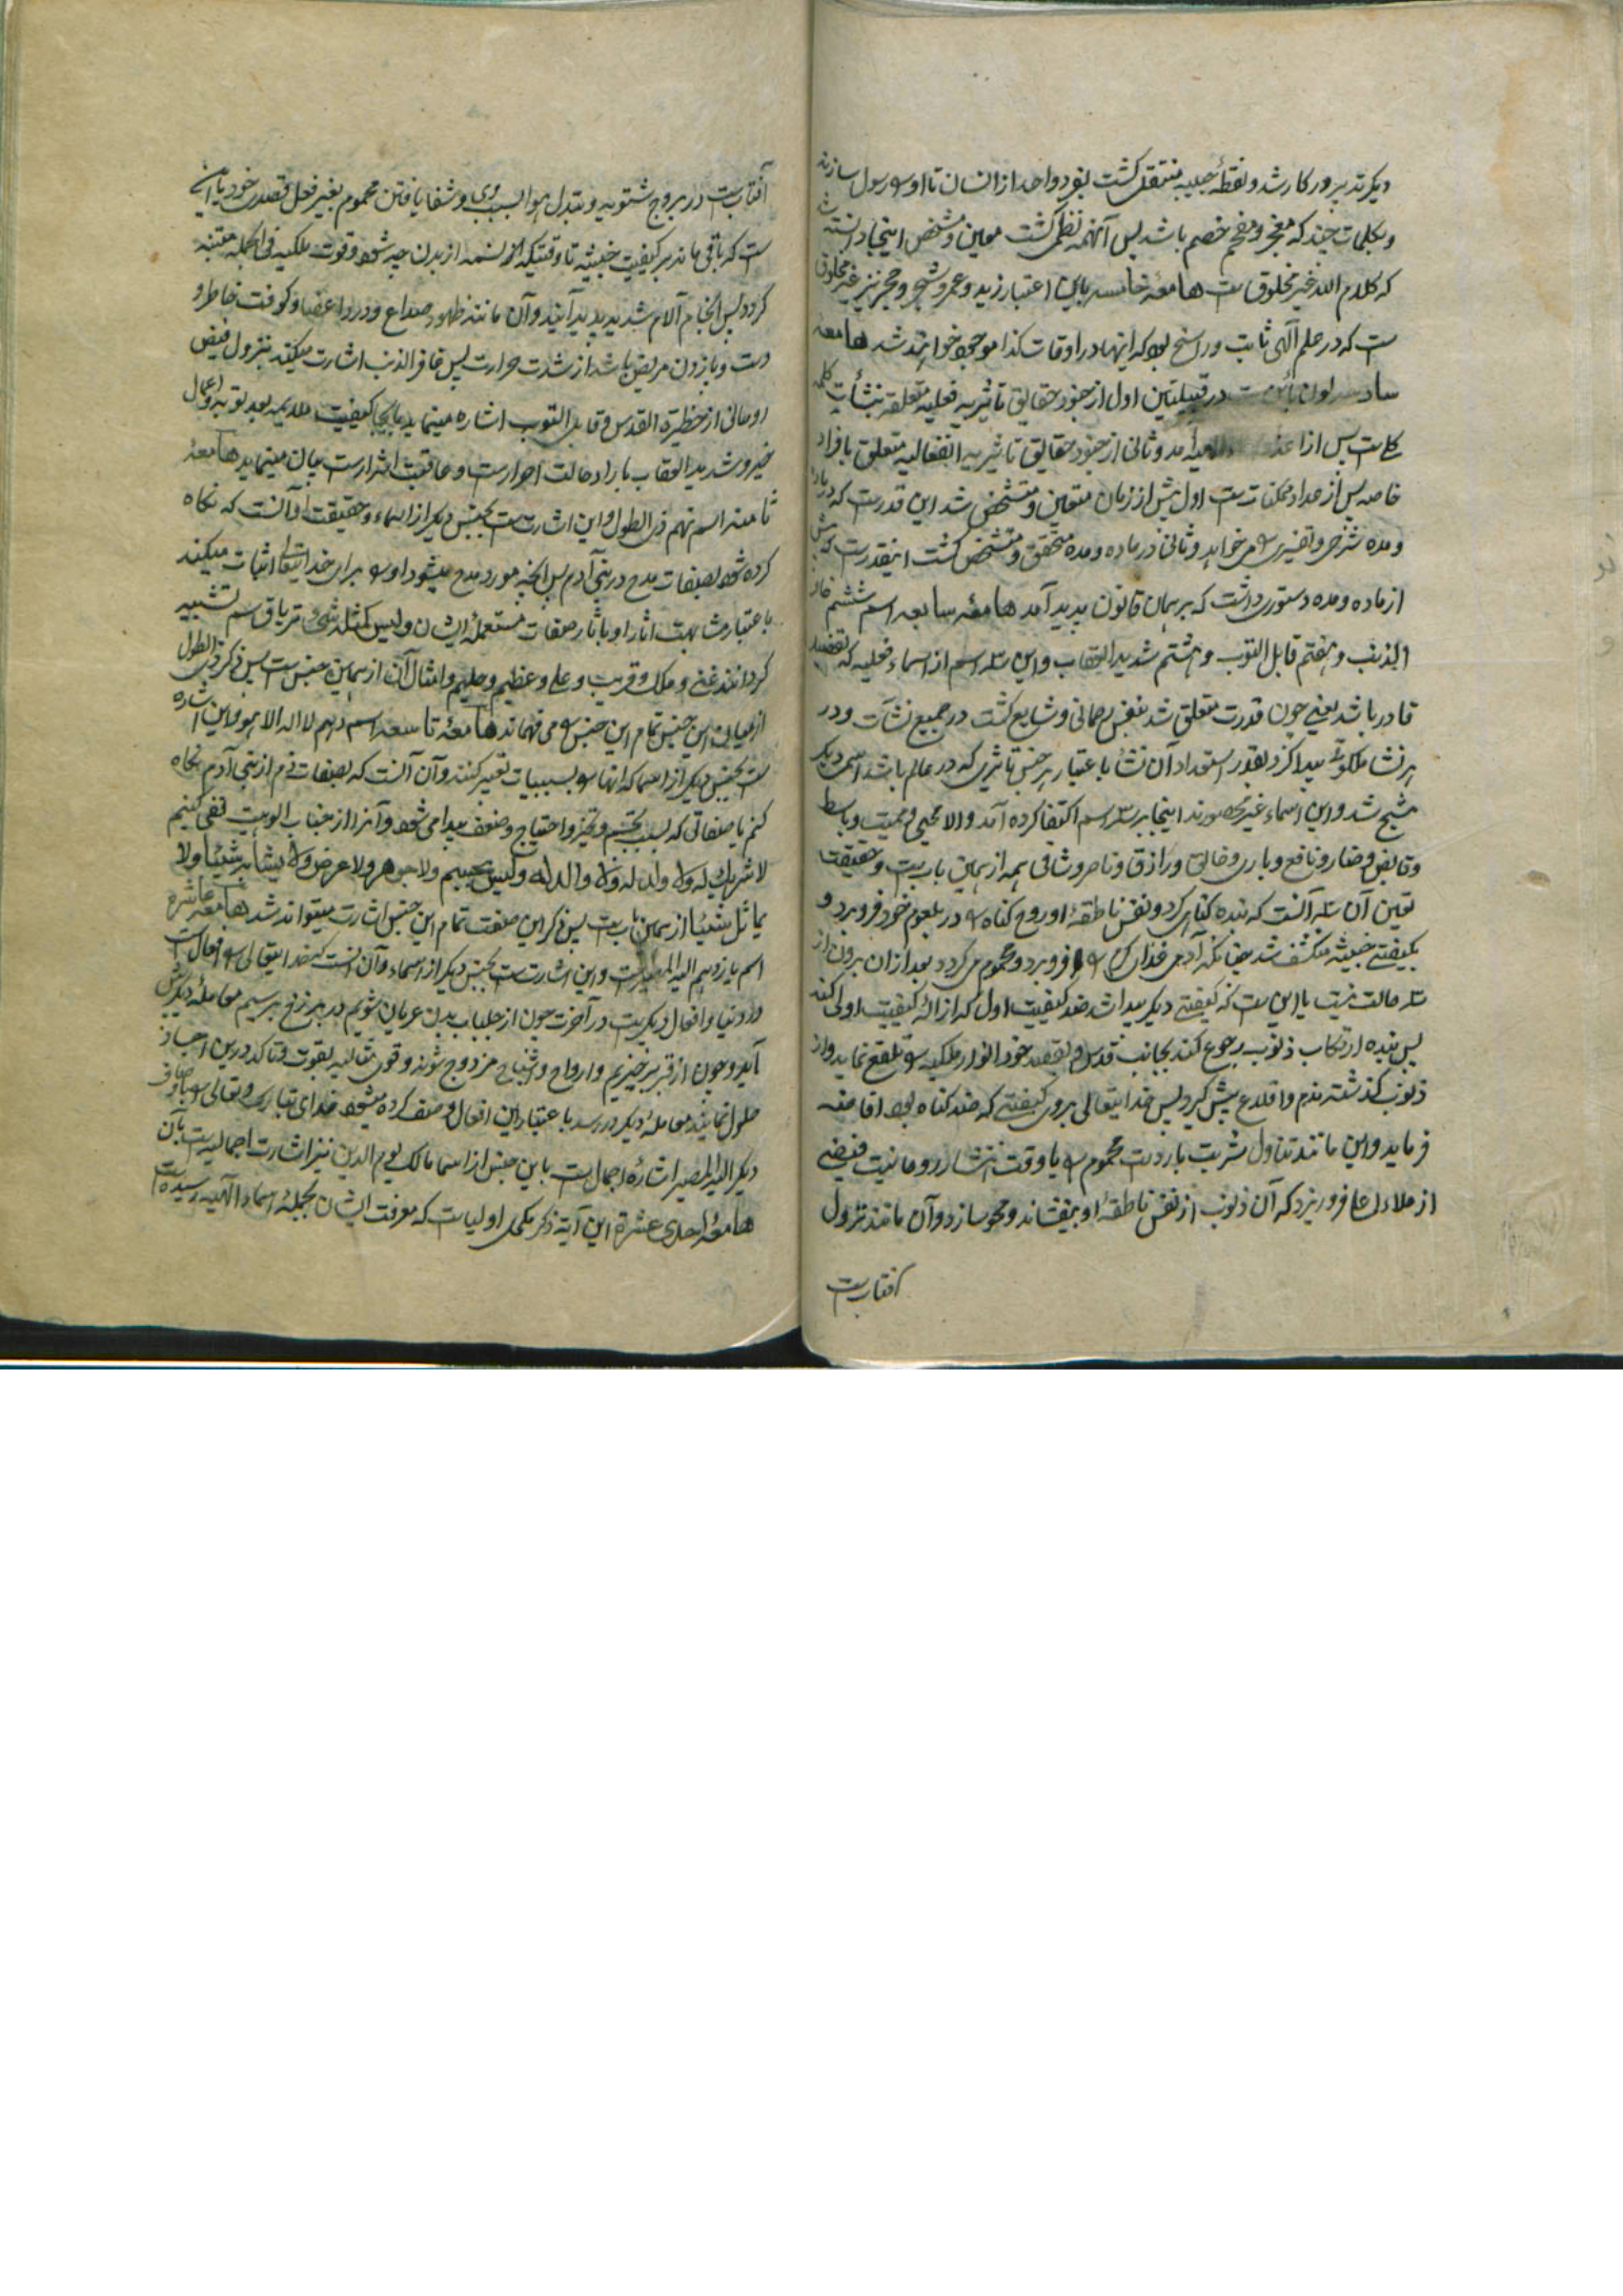 دیکر تدبیر در کار شد و نقطهٔ جبلیه منتقل کشت بفرد واحد از انسان تا او را رسول سازند
و بکلمات چند که معجز و مفحم خصم باشد پس آنهمه نظم کشت معین و مشخص اینجا دانسته
که کلام الله غیر مخلوق است هامعه خامسه باین اعتبار زید و عمرو و شجر و حجر نیز غیر مخلوق
ست که در علم آلهی ثابت و راسخ بود که اینها در اوقات کذا موجود خواهند شد هامعه
سادسه در قبیلتین اول از جنود حقایق تاثیریه فعلیه متعلقه بنشأت کلیه
است پس از آمد و ثانی از جنود حقایق تاثیریه انفعالیه متعلق بافراد
خاصه پس از مواد ممکنات ست اول پیش از زمان متعین و متشخص شد این قدرست که در
و مده شرحی و تفسیری را می خواهد و ثانی در ماده و مده متحقق و متشخص کشت اینقدرست که
از ماده و مده دستوری داشت که بر همان قانون پدید آمد هامعه سابعه اسم ششم غافر
الذنب و هفتم قابل التوب و هشتم شدید العقاب و این سه اسم از اسماء فعلیه که
قادر باشد یعنی چون قدرت متعلق شد بنفس رحمانی و شایع کشت در جمیع نشآت و در
هر نشأ ملکوتی پیدا کرد بقدر استعداد آن نشأ باعتبار هر جنس تاثیری که در عالم باشد اسمی دیکر
مشبح شد و این اسماء غیر محصورند اینجا بر سه اسم اکتفا کرده آمد و الا محیی و ممیت و باسط
و قابض و ضار و نافع و باری و خالق و رازق و ناصر و شافی همه از همین باب ست و حقیقت
تعین آن سه آنست که بنده کناهی کرد و نفس ناطقهٔ او روح کناه را در بلعوم خود فرو برد و
بکیفیتی خبیثه متکشف شد چنانکه آدمی غذای را فرو برد و محموم می کردد بعد ازان برون از
سه حالت نیست یا این ست که کیفیتی دیکر پیدا شد ضد کیفیت اول که ازالهٔ کیفیت اولی کند
پس بنده ارتکاب ذنوب رجوع کند بجانب قدس و بقصد خود انوار ملکیه را تلقی نماید و از
ذنوب کذشته ندم و اقلاع پیش کیرد پس خدایتعالی بروی کیفیتی که ضد کناه بود افاضه
فرماید و این مانند تناول شربت بارد ست محموم را یا وقت انتشار روحانیت فیضی
از ملاء اعلی فرو ریزد که آن ذنوب از نفس ناطقهٔ او بیفشاند و محو سازد و آن مانند نزول
آفتاب ست
آفتاب ست در بروج شتویه و تبدل هوا بسبب وی و شفا یافتن محموم بغیر فعل قصدی خود یا این
ست که باقی ماند بر کیفیت خبیثه تا وقتیکه نسمه از بدن جدا شود و قوت ملکیه فی الجمله متنبه
کردد پس انجام آلام شدیده پدید آیند و آن مانند ظهور صداع و درد اعضا و کوفت خاطر و
دست و پا زدن مریض باشد از شدت حرارت پس غافر الذنب اشارت میکند بنزول فیض
روحانی از حظیرة القدس و قابل التوب اشاره مینماید بایجاب کیفیت ملایمه بعد توبه و اعمال
خیر و شدید العقاب بایراد حالت احرار ست و عاقبت اشرار ست بیان مینماید هامعهٔ
ثامنه اسم نهم ذی الطول و این اشارت ست بجنس دیکر از اسماء و حقیقت او آنست که نکاه
کرده شود بصفات مدح در بنی آدم پس آنچه مورد مدح میشود او را برای خدایتعالی اثبات میکند
باعتبار مشابهت آثار او بآثار صفات مستعملهٔ ایشان و لیس کمثله شیء تریاق سم تشبیه
کردانند غنی و ملک و قریب و علی و عظیم و حلیم و امثال آن از همین جنس ست پس ذکر ذی الطول
از میان این جنس تمام این جنس را می فهماند هامعهٔ تاسعه اسم دهم لا اله الا هو و این اشاره
ست بجنس دیکر از اسما که آنها را بسلبیات تعبیر کنند و آن آنست که بصفات ذم از بنی آدم نکاه
کنیم یا صفاتی که بسبب تجسم و تحیز و احتیاج و ضعف پیدا می شود و آنرا از جناب الوهیت نفی کنیم
لا شریک له ولا ولد له ولا والد له ولیس بجسم ولا جوهر ولا عرض ولا یشابه شیئا ولا
یماثل شیئا از همین باب ست پس ذکر این صفت تمام این جنس اشارت میتواند شد هامعه عاشره
اسم یازدهم الیه المصیر ست و این اشارت ست بجنس دیکر از اسماء و آن آنست که خدایتعالی را افعال ست
در دنیا و افعال دیکر ست در آخرت چون از جلباب بدن عریان شویم در برزخ برسیم معاملهٔ دیکر پیش
آید و چون از قبر برخیزیم و ارواح و اشباح مزدوج شوند و قوی مثالیه بقوت و تاکد درین اجساد
حلول نمایند معاملهٔ دیکر در رسد باعتبار این افعال وصف کرده میشود خدای تبارک و تعالی را باوصاف
دیکر الیه المصیر اشارهٔ اجمالی ست باین جنس از اسما مالک یوم الدین نیز اشارت اجمالیه ست بآن
هامعهٔ احدی عشرة این آیة ذکر مکمل اولیاست که معرفت ایشان بجملهٔ اسماء الهیه رسیده است